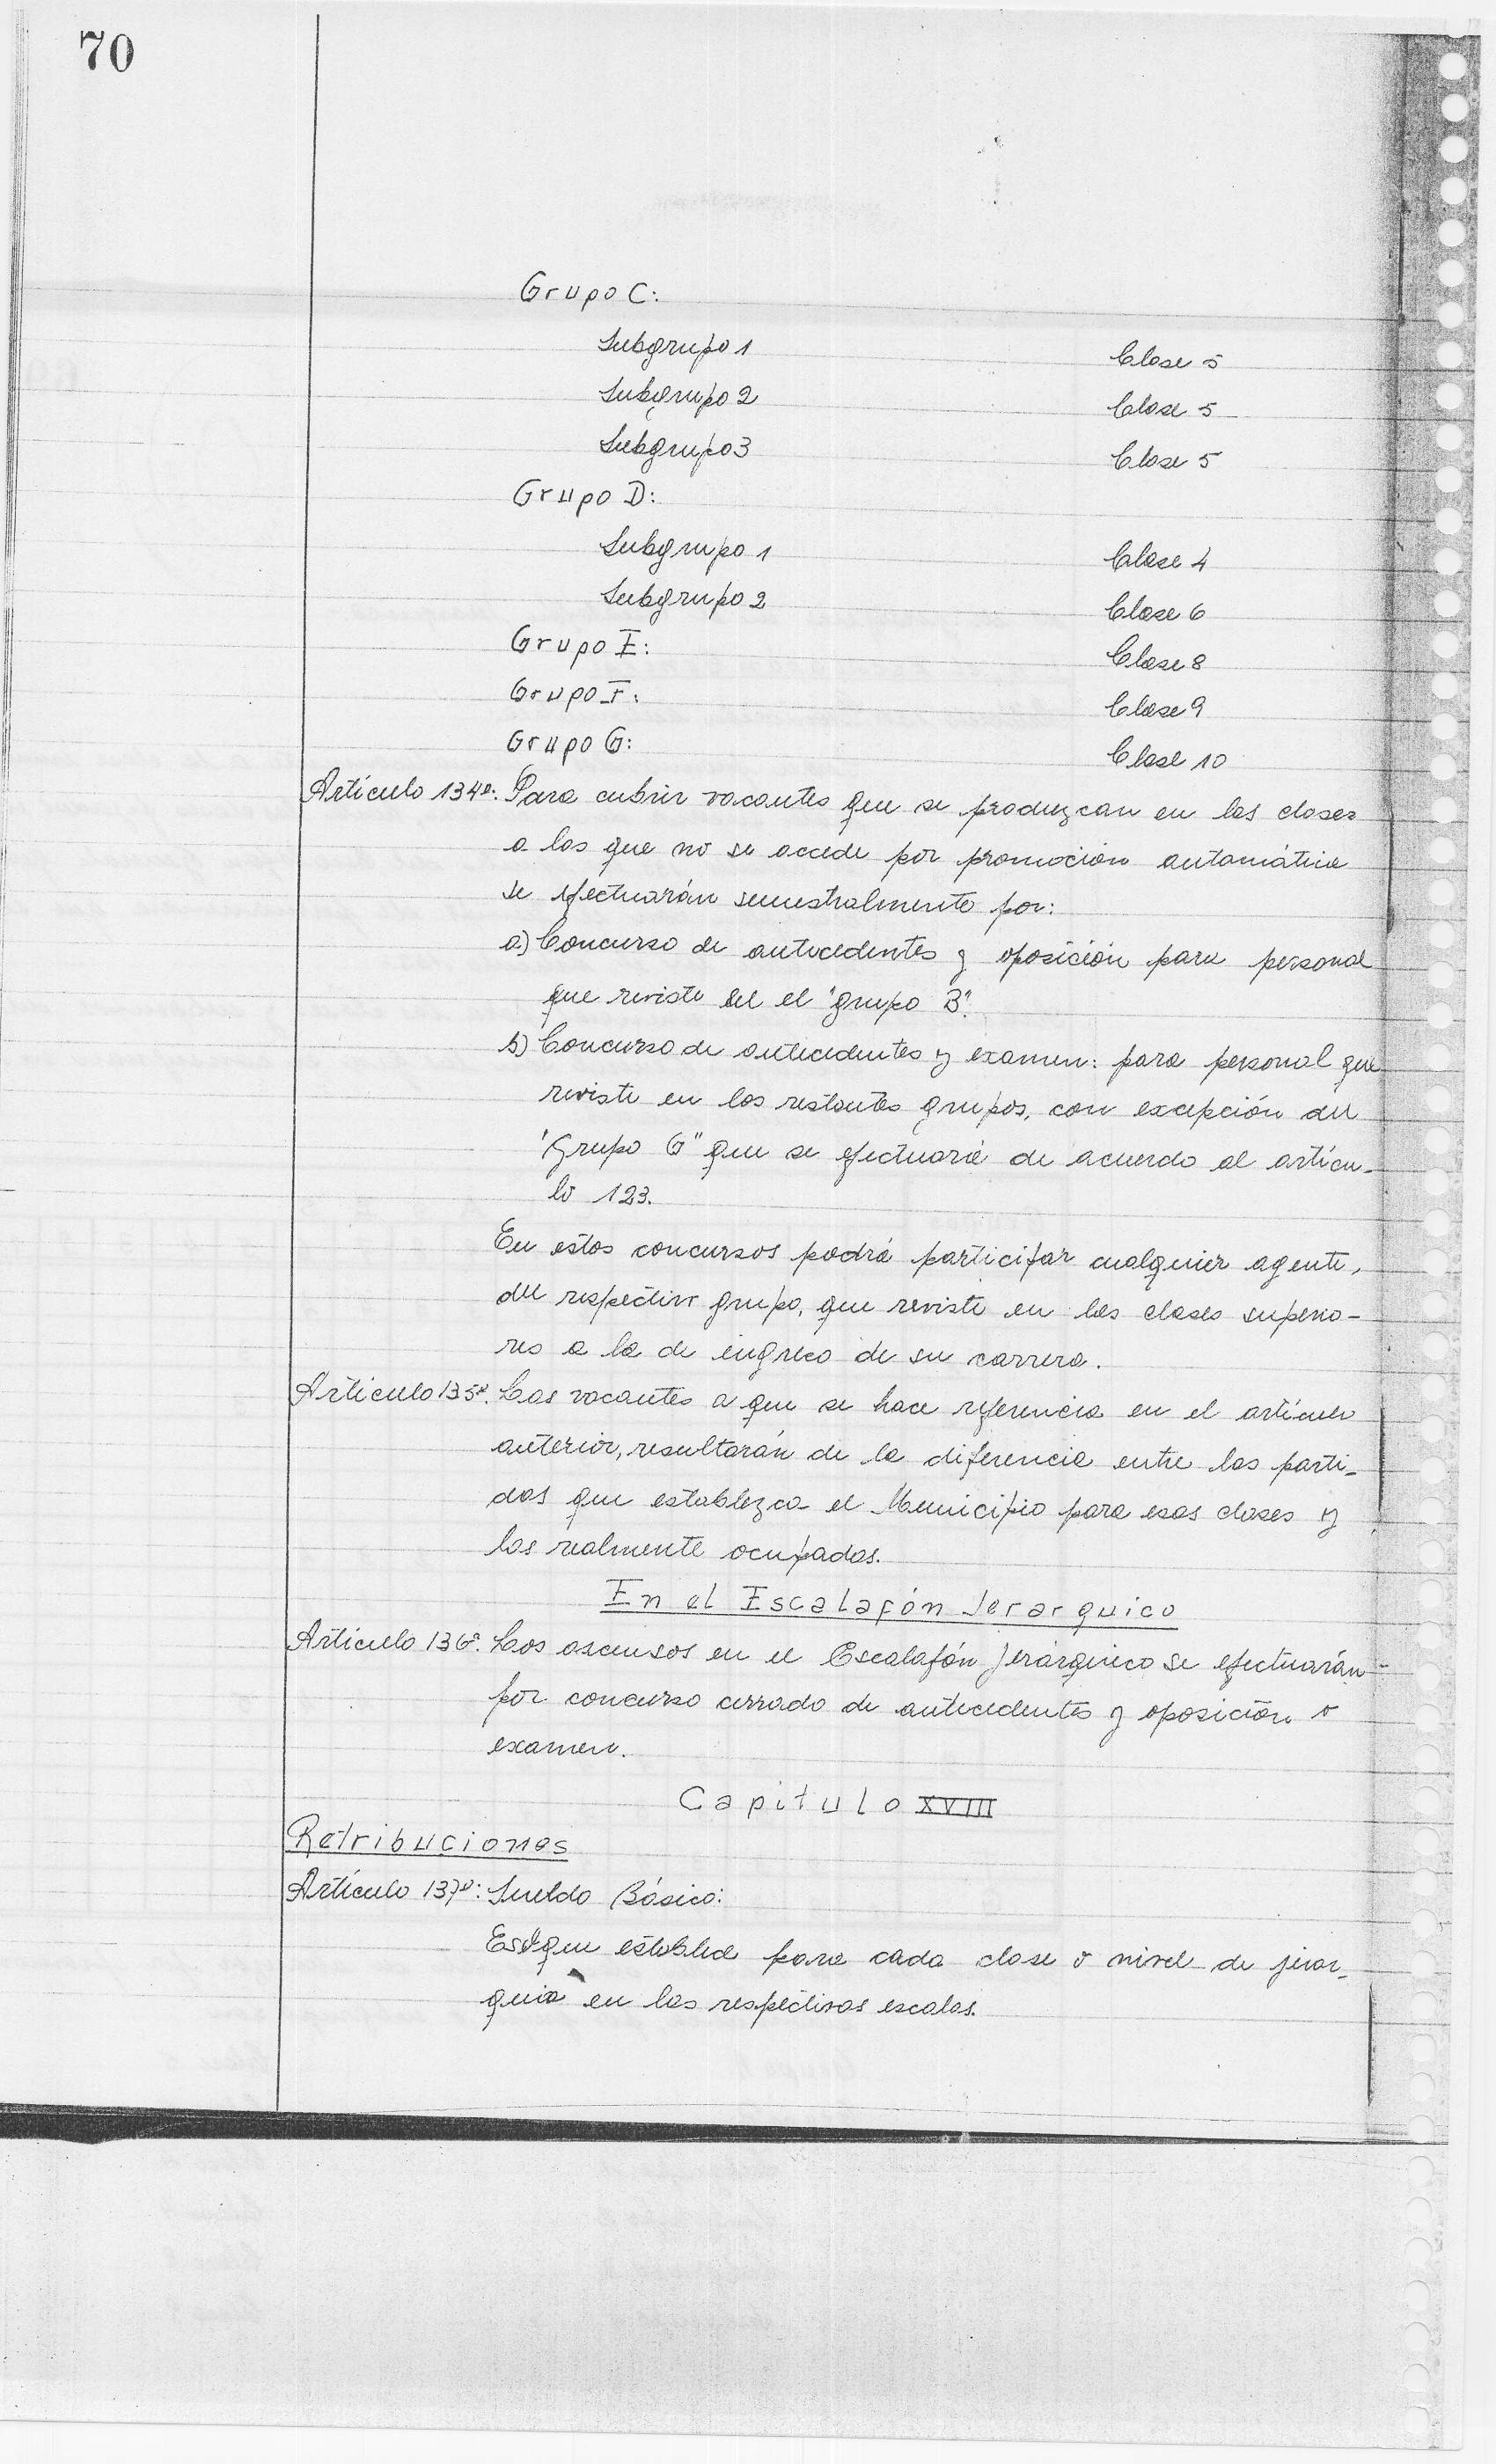 70
Grupo C:
Subgrupo 1 Clase 5
Subgrupo 2 Clase 5
Subgrupo 3 Clase 5
Grupo D:
Subgrupo 1 Clase 4
Subgrupo 2 Clase 6
Grupo E: Clase 8
Grupo F: Clase 9
Grupo G: Clase 10
Artículo 134º: Para cubrir vacantes que se produzcan en las clases
a las que no se accede por promoción automática
se efectuarán semestralmente por:
a) Concurso de antecedentes y oposición para personal
que reviste en el "grupo B".
b) Concurso de antecedentes y examen: para personal que
reviste en los restantes grupos, con excepción del
"Grupo G" que se efectuará de acuerdo al artícu-
lo 123.
En estos concursos podrá participar cualquier agente,
del respectivo grupo, que reviste en las clases superio-
res a la de ingreso de su carrera.
Artículo 135º. Las vacantes a que se hace referencia en el artículo
anterior, resultarán de la diferencia entre las parti-
das que establezca el Municipio para esas clases y
las realmente ocupadas.
En el Escalafón Jerarquico
Artículo 136º. Los ascensos en el Escalafón Jerárquico se efectuarán
por concurso cerrado de antecedentes y oposición o
examen.
Capitulo XVIII
Retribuciones
Artículo 137º: Sueldo Básico:
Es el que establece para cada clase o nivel de jerar-
quia en las respectivas escalas.